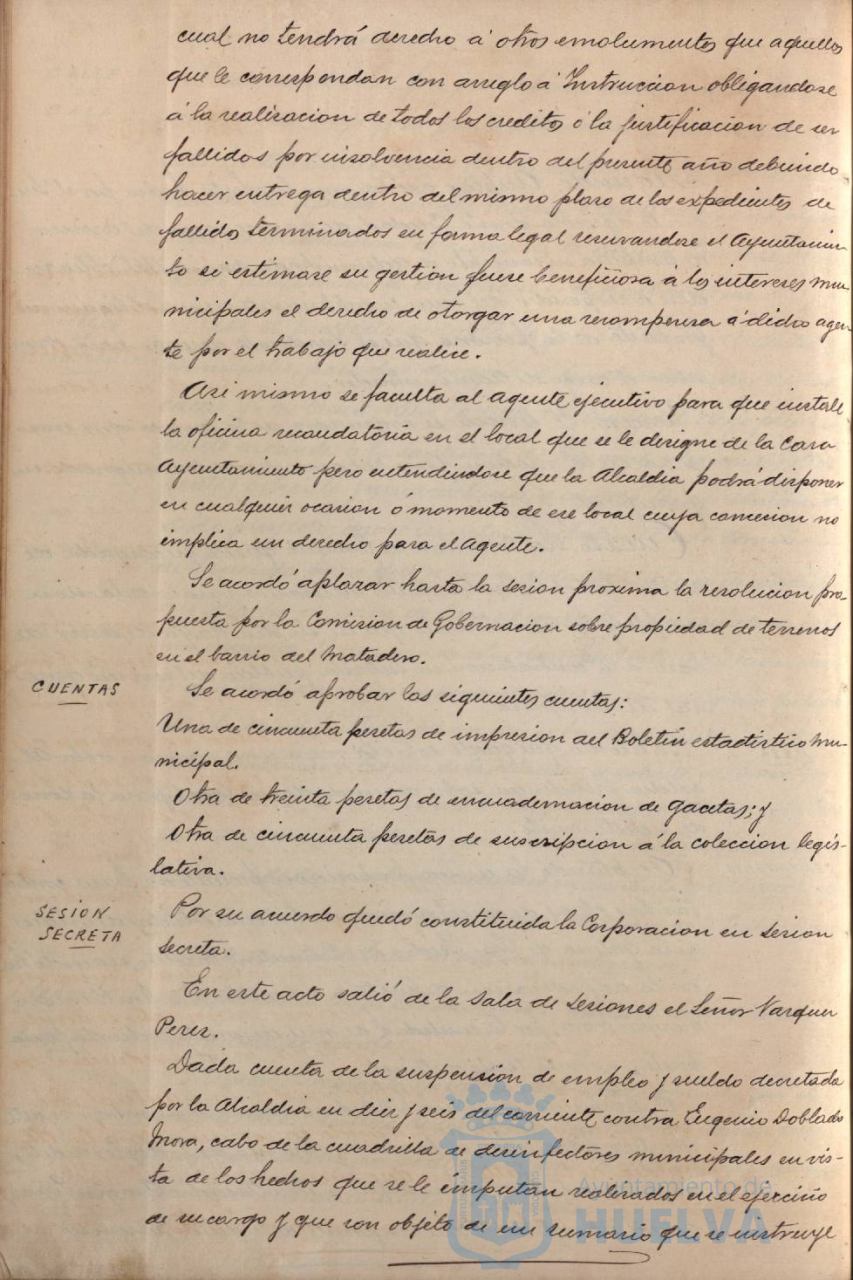 cual no tendrá derecho á otros emolumentos que aquellos
que le correspondan con arreglo á Instruccion obligandose
á la realizacion de todos los creditos ó la justificacion de ser
fallidos por insolvencia dentro del presente año debiendo
hacer entrega dentro del mismo plazo de los expedientes de
fallidos terminados en forma legal reservandose el Ayuntamien-
to si estimase su gestion fuese beneficiosa á los intereses mu-
nicipales el derecho de otorgar una recompensa á dicho agen-
te por el trabajo que realice.
Asi mismo se faculta al agente ejecutivo para que instale
la oficina recaudatoria en el local que se le designe de la Casa
Ayuntamiento pero entendiendose que la Alcaldia podrá disponer
en cualquier ocasion ó momento de ese local cuya concesion no
implica un derecho para el Agente.
Se acordó aplazar hasta la sesion proxima la resolucion pro-
puesta por la Comision de Gobernacion sobre propiedad de terrenos
en el barrio del Matadero.
CUENTAS
Se acordó aprobar las siguientes cuentas:
Una de cincuenta pesetas de impresion del Boletin estadistico Mu-
nicipal.
Otra de treinta pesetas de encuadernacion de gacetas; y
Otra de cincuenta pesetas de suscripcion á la coleccion legis-
lativa.
SESION
SECRETA
Por su acuerdo quedó constituida la Corporacion en sesion
secreta.
En este acto salió de la Sala de Sesiones el Señor Vazquez
Perez.
Dada cuenta de la suspension de empleo y sueldo decretada
por la Alcaldia en diez y seis del corriente contra Eugenio Doblado
Mora, cabo de la cuadrilla de desinfectores municipales en vis-
ta de los hechos que se le imputan realizados en el ejercicio
de su cargo y que son objeto de un sumario que se instruye
Ayuntamiento de
HUELVA